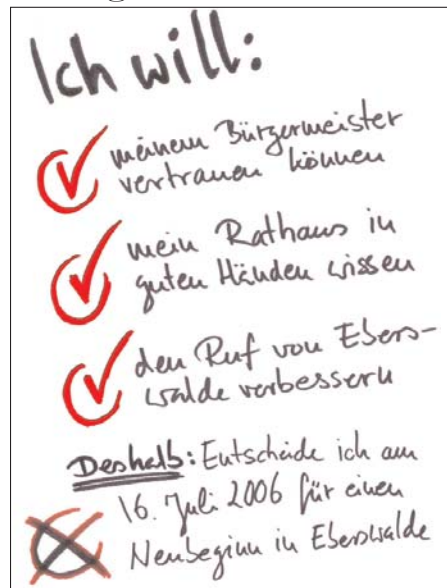 Ich will:
meinem Bürgermeister
vertrauen können
mein Rathaus in
guten Händen wissen
den Ruf von Ebers-
walde verbessern
Deshalb: Entscheide ich am
16. Juli 2006 für einen
Neubeginn in Eberswalde